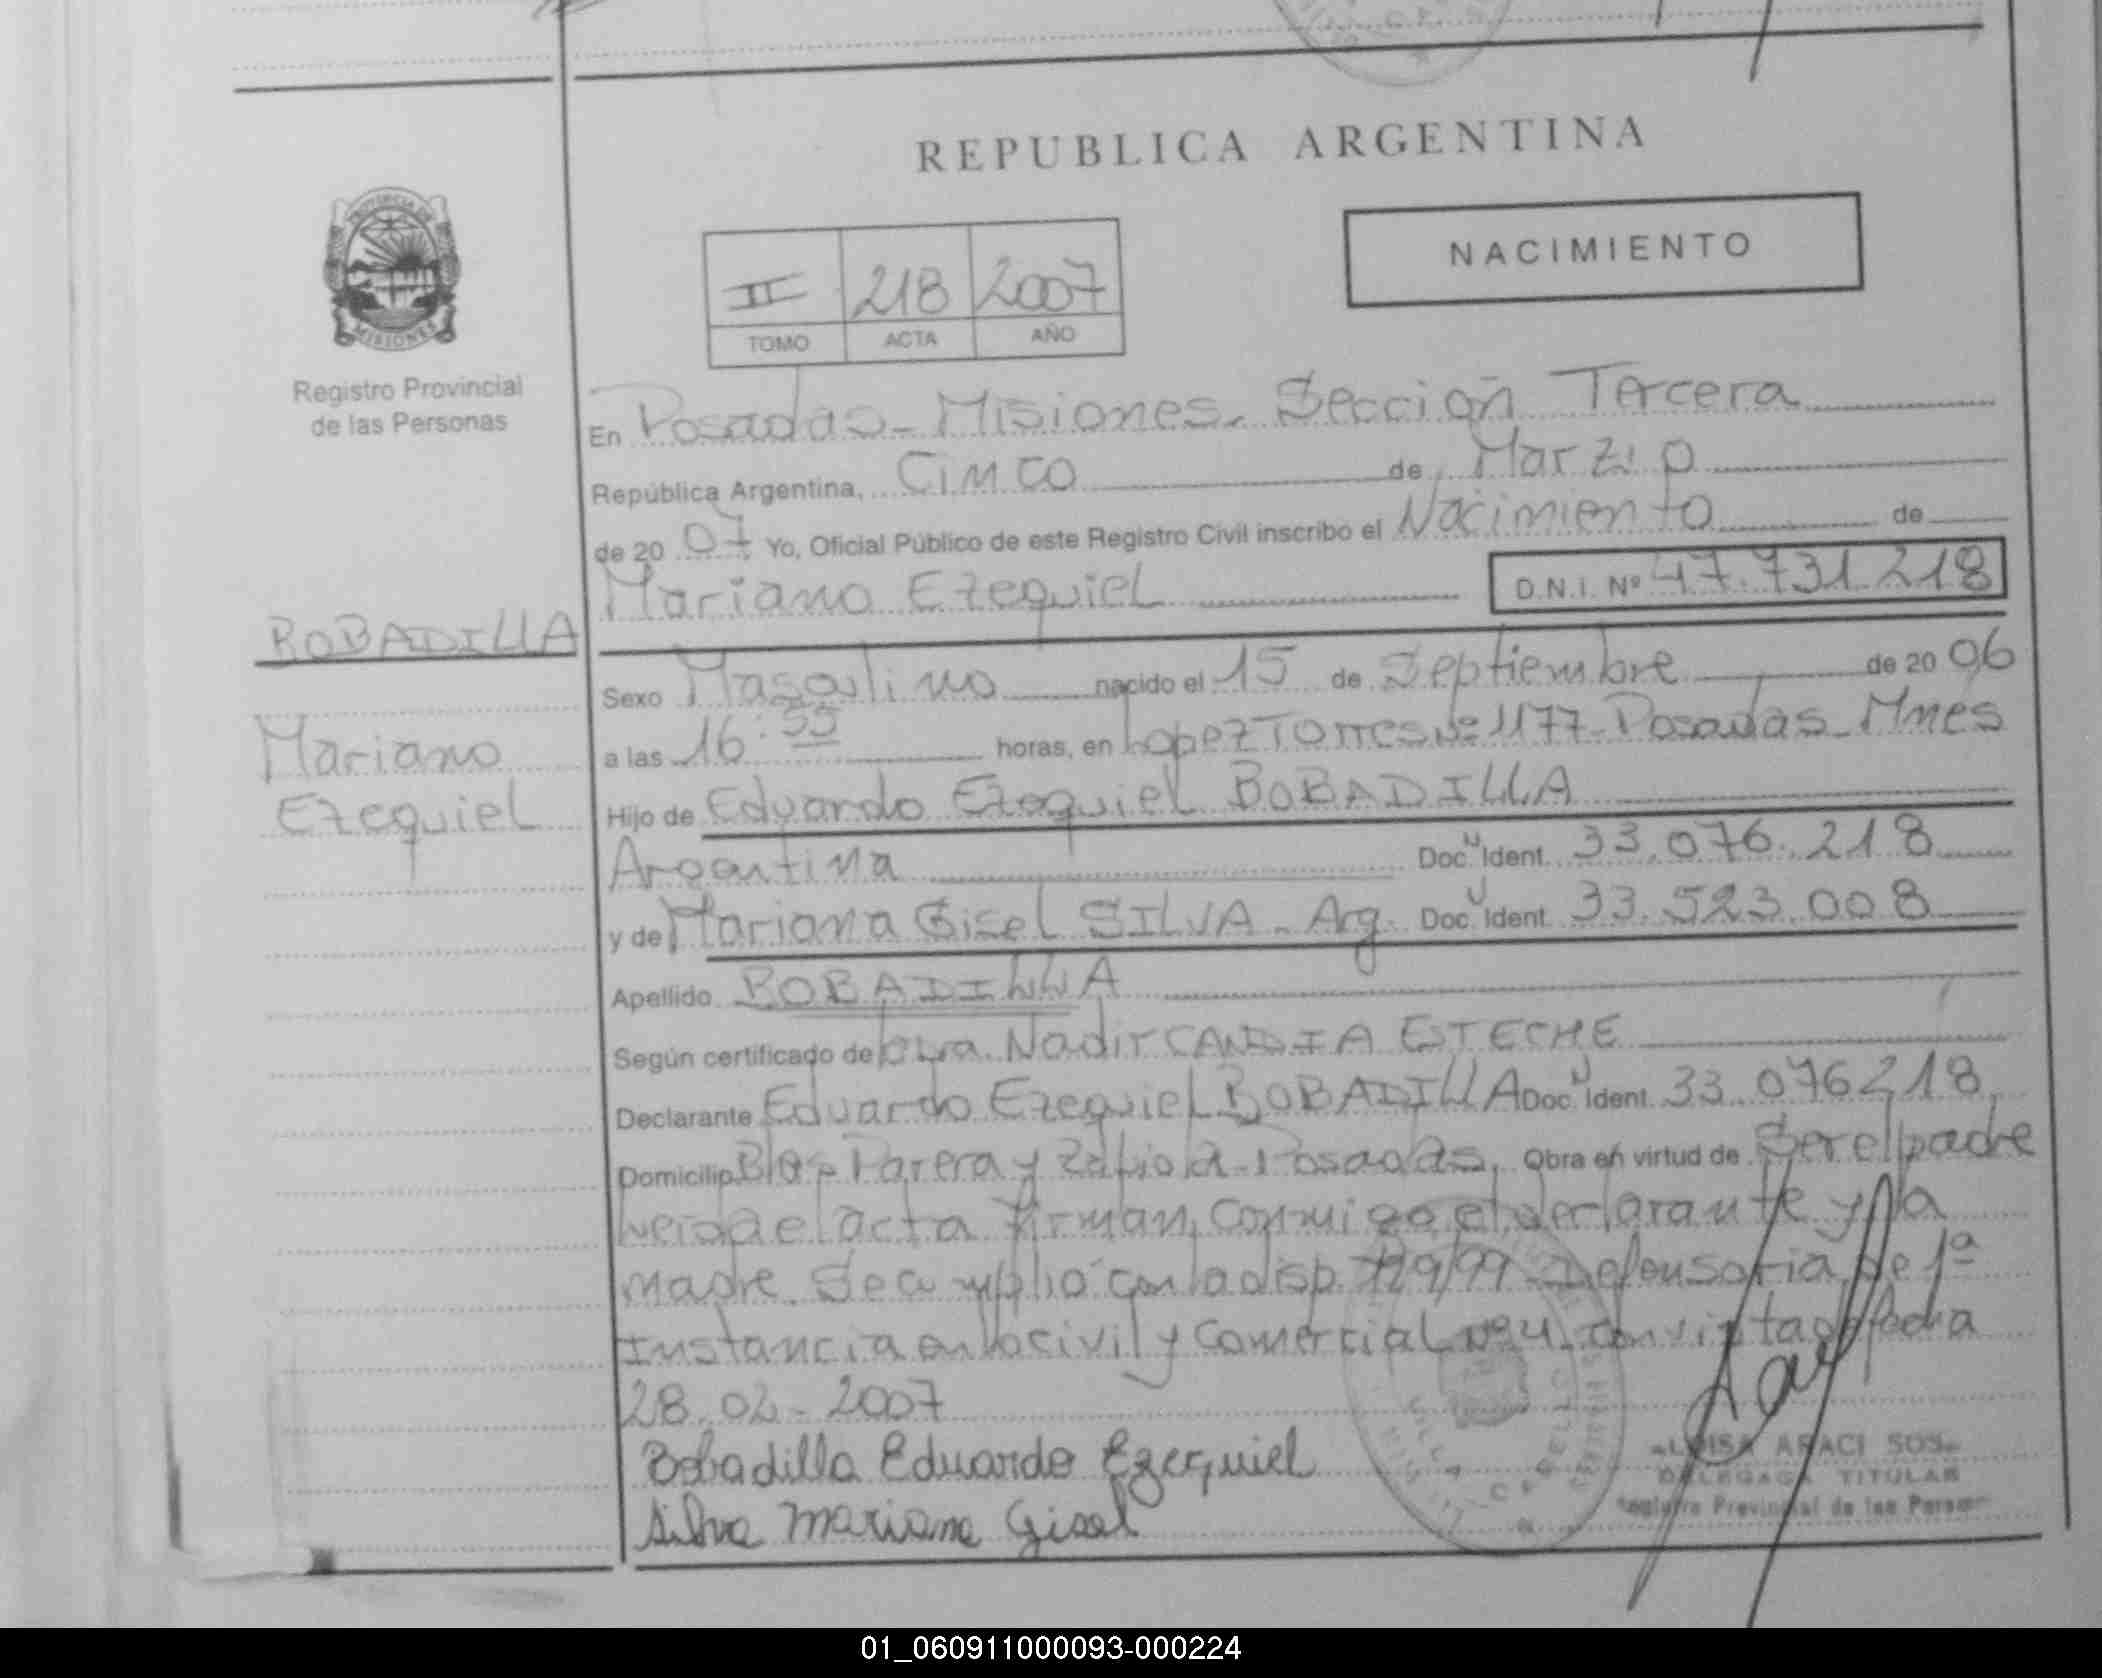 REPUBLICA ARGENTINA
PROVINCIA DE
MISIONES
Registro Provincial
de las Personas
NACIMIENTO
II 218 2007
TOMO ACTA AÑO
En Posadas - Misiones. Sección Tercera
República Argentina, Cinco de Marzo
de 20 07 Yo, Oficial Público de este Registro Civil inscribo el Nacimiento de
Mariano Ezequiel D.N.I. Nº 47.731.218
BOBADILLA
Mariano
Ezequiel
Sexo Masculino nacido el 15 de Septiembre de 20 06
a las 16:55 horas, en Lopez Torres Nº 1177 - Posadas - Mnes
Hijo de Eduardo Ezequiel BOBADILLA
Argentina Doc. Ident. 33.076.218
y de Mariana Gisel SILVA - Arg. Doc. Ident. 33.523.008
Apellido BOBADILLA
Según certificado de Dra. Nadir CANDIA ESTECHE
Declarante Eduardo Ezequiel BOBADILLA Doc. Ident. 33.076218
Domicilio Blas Parera y Posadas. Obra en virtud de Ser el padre
Leida el acta firman conmigo el declarante y la
madre. Se cumplió con la disp. /99 Defensoria de 1ª
Instancia en lo civil y Comercial Nº 4. Con vista de fecha
28-02-2007
Bobadilla Eduardo Ezequiel
Silva Mariana Gisel
LUISA ARACI SOSA
DELEGADA TITULAR
Registro Provincial de las Personas
01_060911000093-000224